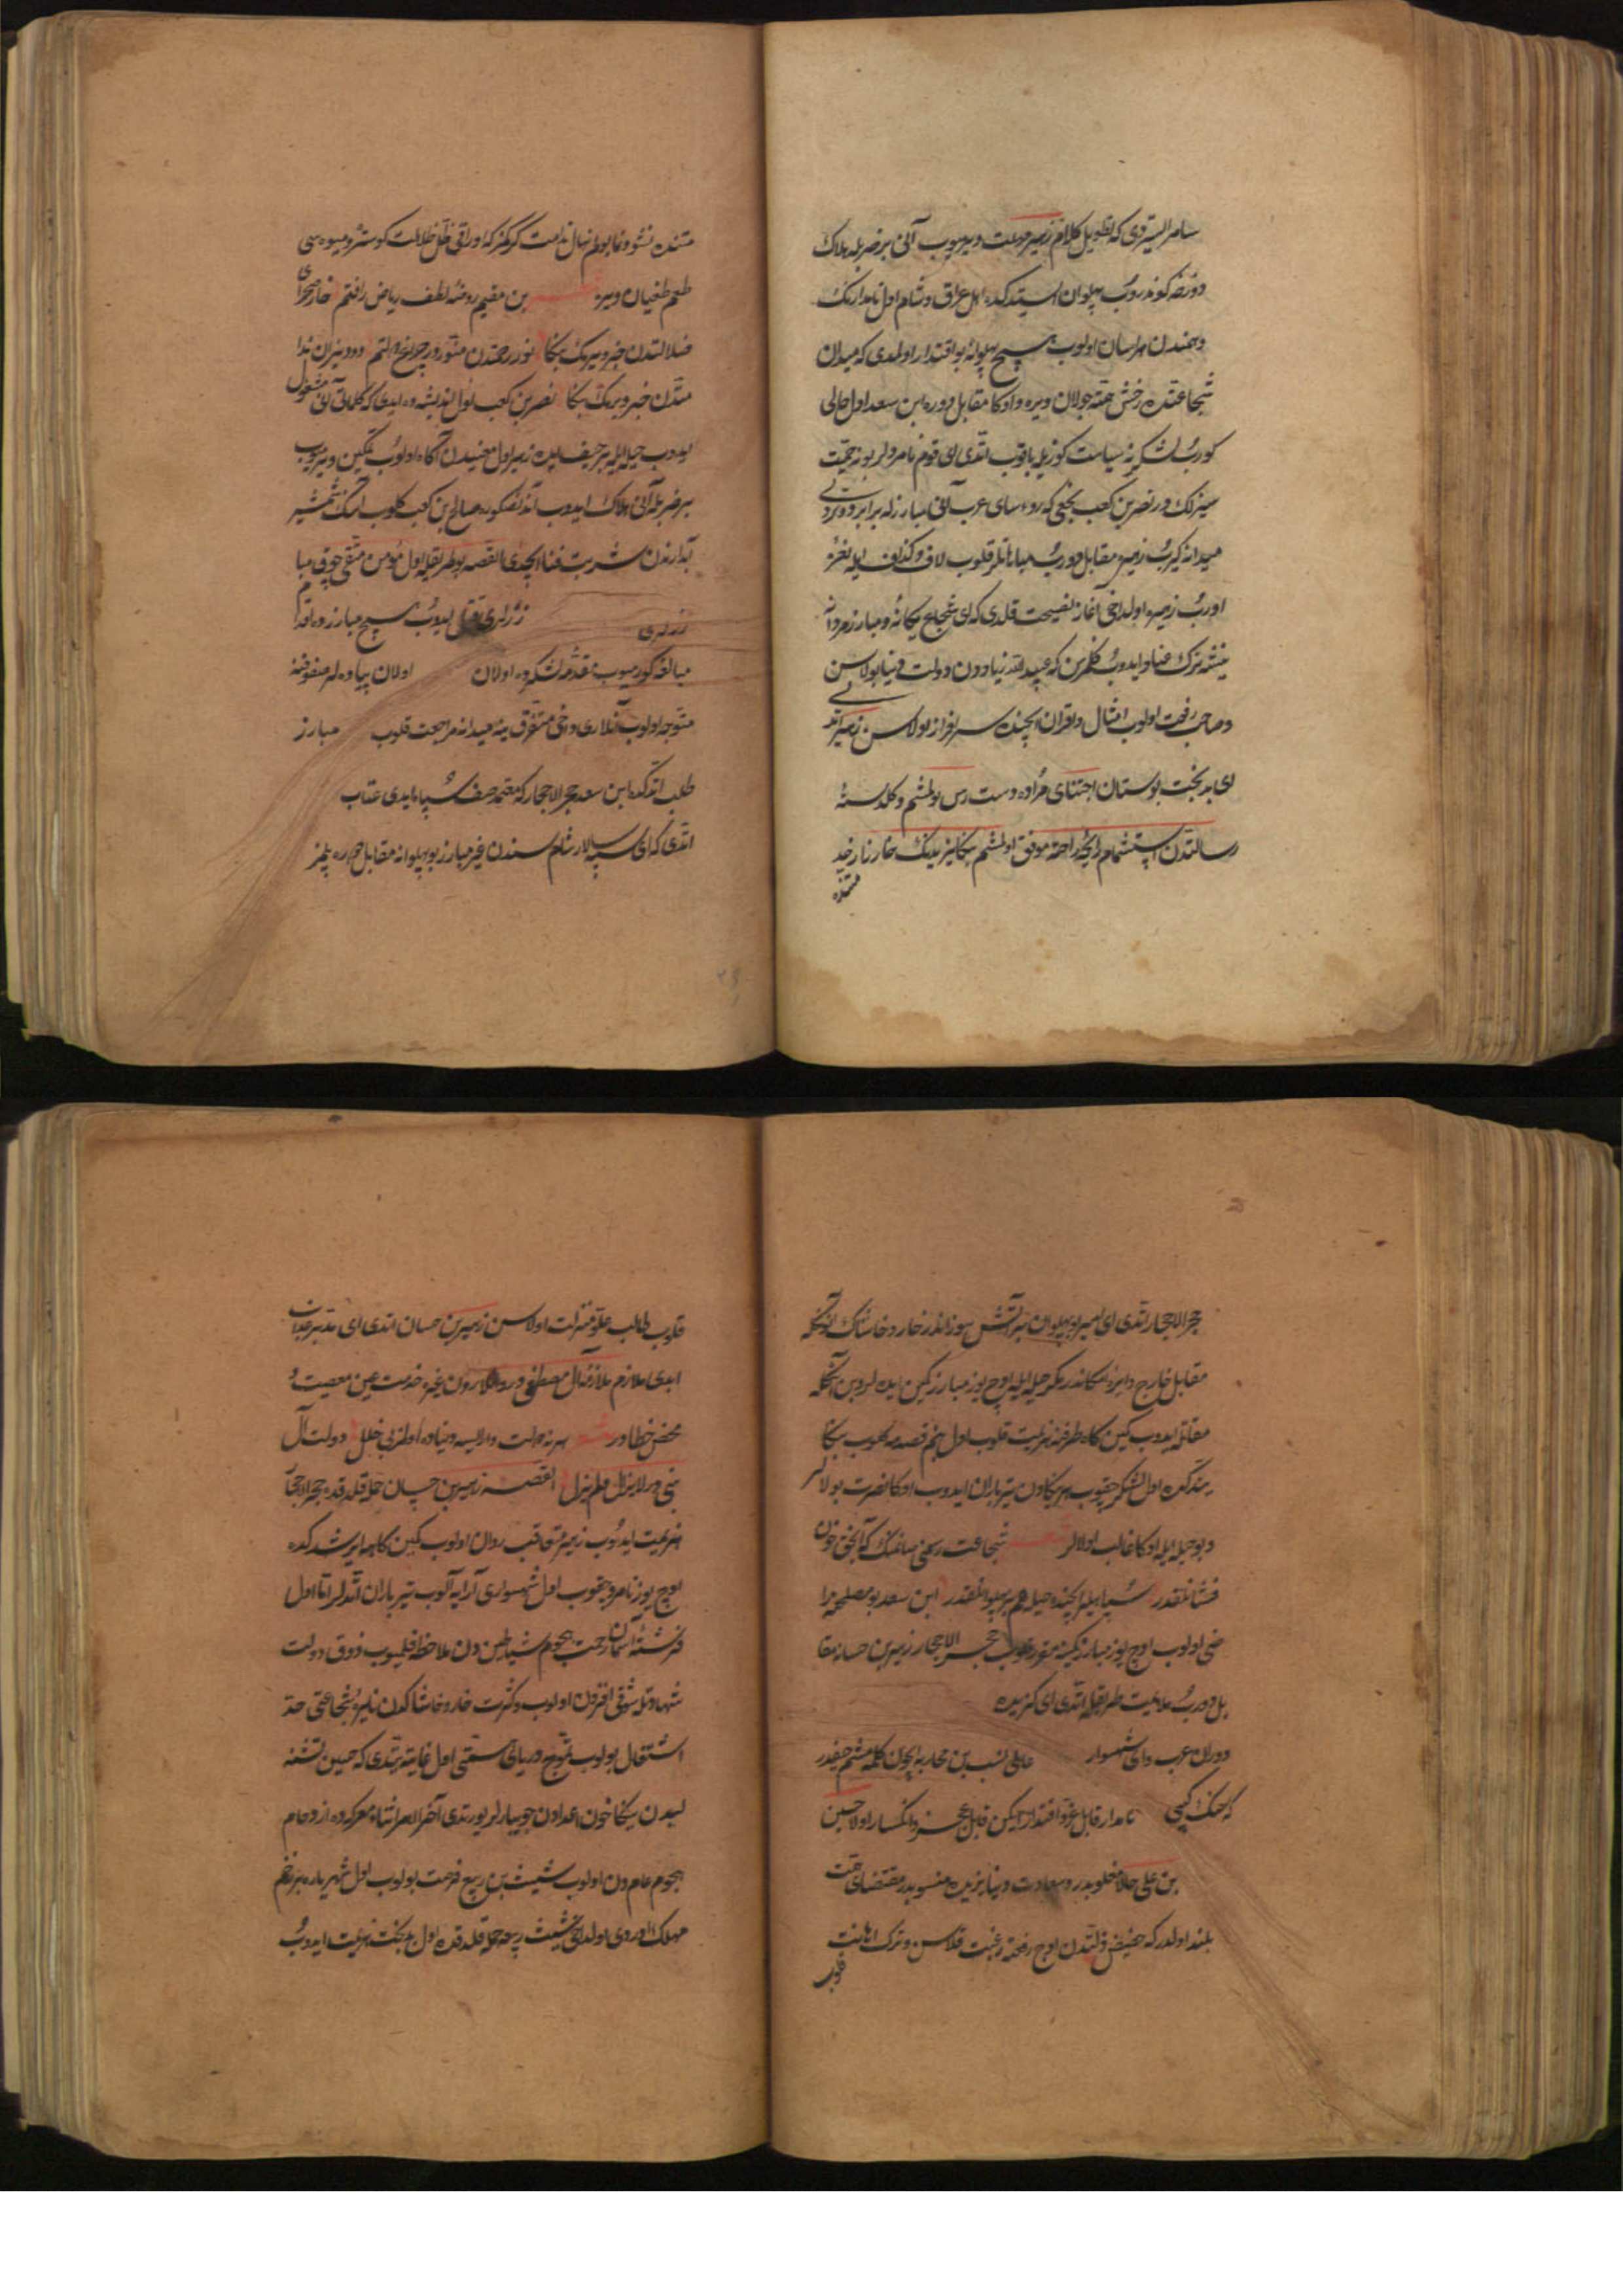 سامر الیتردی که تطویل کلام زهیر فرصت ویرمیوب آنی بر ضربله هلاک
دوزخه کوندروب پهلوان استدکده اهل عراق و شام اول نامدارنک
وهمندن هراسان اولوب هیچ پهلوانه بو اقتدار اولمدی که میدان
شجاعتده رخش همته جولان ویره و اوکا مقابل دوره ابن سعد اول حالی
کوروب لشکرینه سیاست کوزیله باقوب اتدی ای قوم نامردلر بو نه حمیت
سیزلک در نصر بن کعب نخعی که رؤسای عرب آنی مبارزله برابر دوتردی
میدانه کیروب زهیره مقابل دوروب مباهاتلر قلوب لاف و کذاف ایله نعره
اوروب زهیره اولداخی آغاز نصیحت قلدی که ای شجاع یکانه و مبارز مردانه
نیشه ترک عناد ایدوب کلمزسن که عبید الله زیاددن دولت دنیا بولاسن
و صاحب رفعت اولوب امثال و اقران ایچنده سرافراز اولاسن زهیر اتدی
ای بدبخت بوستان اجتنای مراده دست رس بولمشم و کلدسته
رسالتدن استشمام رایحه راحته موفق اولمشم بکا یزیدنک خارزار خد
متنده
متنده نشو و نما بولم نهال ندامت کرکمز که اوراقی ظل ضلالت کوستر و میوه سی
طعم طغیان ویرر بن مقیم روضه لطف ریاض رافتم خار صحرای
ضلالتدن خبر ویرمک بکا نور رحمتدن منور در چراغ دولتم دود نیران ندا
متدن خبر ویرمک بکا نصر بن کعب اول اندیشه ده ایدی که کلماتله آنی مشغول
ایدوب حیله ایله بر حیف ایده زهیر اول معنیدن آکاه اولوب تمکین ویرمیوب
بر ضربله آنی هلاک ایدوب آندنصکره صالح بن کعب کلوب انک شمشیر
آبدارندن شربت فنا ایچدی القصه بو طریقله اول مؤمن متقی چوق مبا
رزلری رزلری قتل ایدوب هیچ مبارزده اقدام
مبالغه کورمیوب مقدمه لشکرده اولان اولان پیاده لر صفوفنه
متوجه اولوب آنلاری داخی متفرق ینه میدانه مراجعت قلوب مبارز
طلب اتدکده ابن سعد حجر الاحجار که معتمد صف سپاه ایدی عتاب
اتدی که ای سپهسالار شام سندن غیر مبارز بو پهلوانه مقابل دوره بلمز
حجر الاحجار اتدی ای امیر بو پهلوان بر آتش سوزاندر خار و خاشاک آنکله
مقابل خارج دایره امکاندر مکر حیله ایله اوچ یوز مبارز کمین ایده لر و بن آنکله
مقاتله ایدوب کمین کاه طرفنه هزیمت قلوب اول بنم قصدمه کلوب بکا
یتدکده اول لشکر چقوب هر یکاون تیرباران ایدوب اوکا نصرت بولالر
و بو حیله ایله اوکا غالب اولالر شجاعت رسمی صانمک که آنجق خون
فشانلقدر سپاهیلر ایچنده حیله هم بر پهلوانلقدر ابن سعد بو مصلحته را
ضی اولوب اوچ یوز مبارز کمینه مقرر قلوب حجر الاحجار زهیر بن حسانه مقا
بل دوروب ملایمت طریقیله اتدی ای کزیده
دوران عرب و ای شهسوار عالی نسب بن محاربه ایچون کلمه مشم حیفدر
که سنک کیبی نامدار قابل عز و اقتدار ایکن قابل عجز و انکسار اولا حسین
بن علی حالا مغلوبدر و سعادت دنیا یزیده منسوبدر مقتضای همت
بلند اولدر که حضیض ذلتدن اوج رفعته رغبت قلاسن و ترک اهانت
قلوب
قلوب طالب علو منزلت اولاسن زهیر بن حسان اتدی ای مدبر عدالت
ابدی ملازم ملازمه آل مصطفی در و انلاردن غیره خدمت عین معصیت و
محض خطادر هر نه دولت وار ایسه دنیاده اولمز بی خلل دولت آل
نبی در لایزال و لم یزل القصه زهیر بن حسان حمله قلدقده حجر الاحجار
هزیمت ایدوب زهیر متعاقب روان اولوب کمین کاهه ایرشدکده
اوچ یوز نامرد چقوب اول شهسواری آرایه آلوب تیرباران اتدلر اما اول
فرشته آسمان رحمت هجوم شیاطین دن ملاحظه قلمیوب ذوق دولت
شهادتله شوقی افزون اولوب و کثرت خار و خاشاکدن نایره شجاعتی حد
اشتعال بولوب تموج دریای همتی اول غایته یتدی که حسین تشنه
لبدن یکا خون اعدادن جویبارلر یورتدی آخر الامر اثناء معرکه ده ازدحام
هجوم عام دن اولوب شیث بن ربیع فرصت بولوب اول شهریاره بر زخم
مهلک اوردی اولداخی شیث ربیعه حمله قلدقده اول بدبخت هزیمت ایدوب